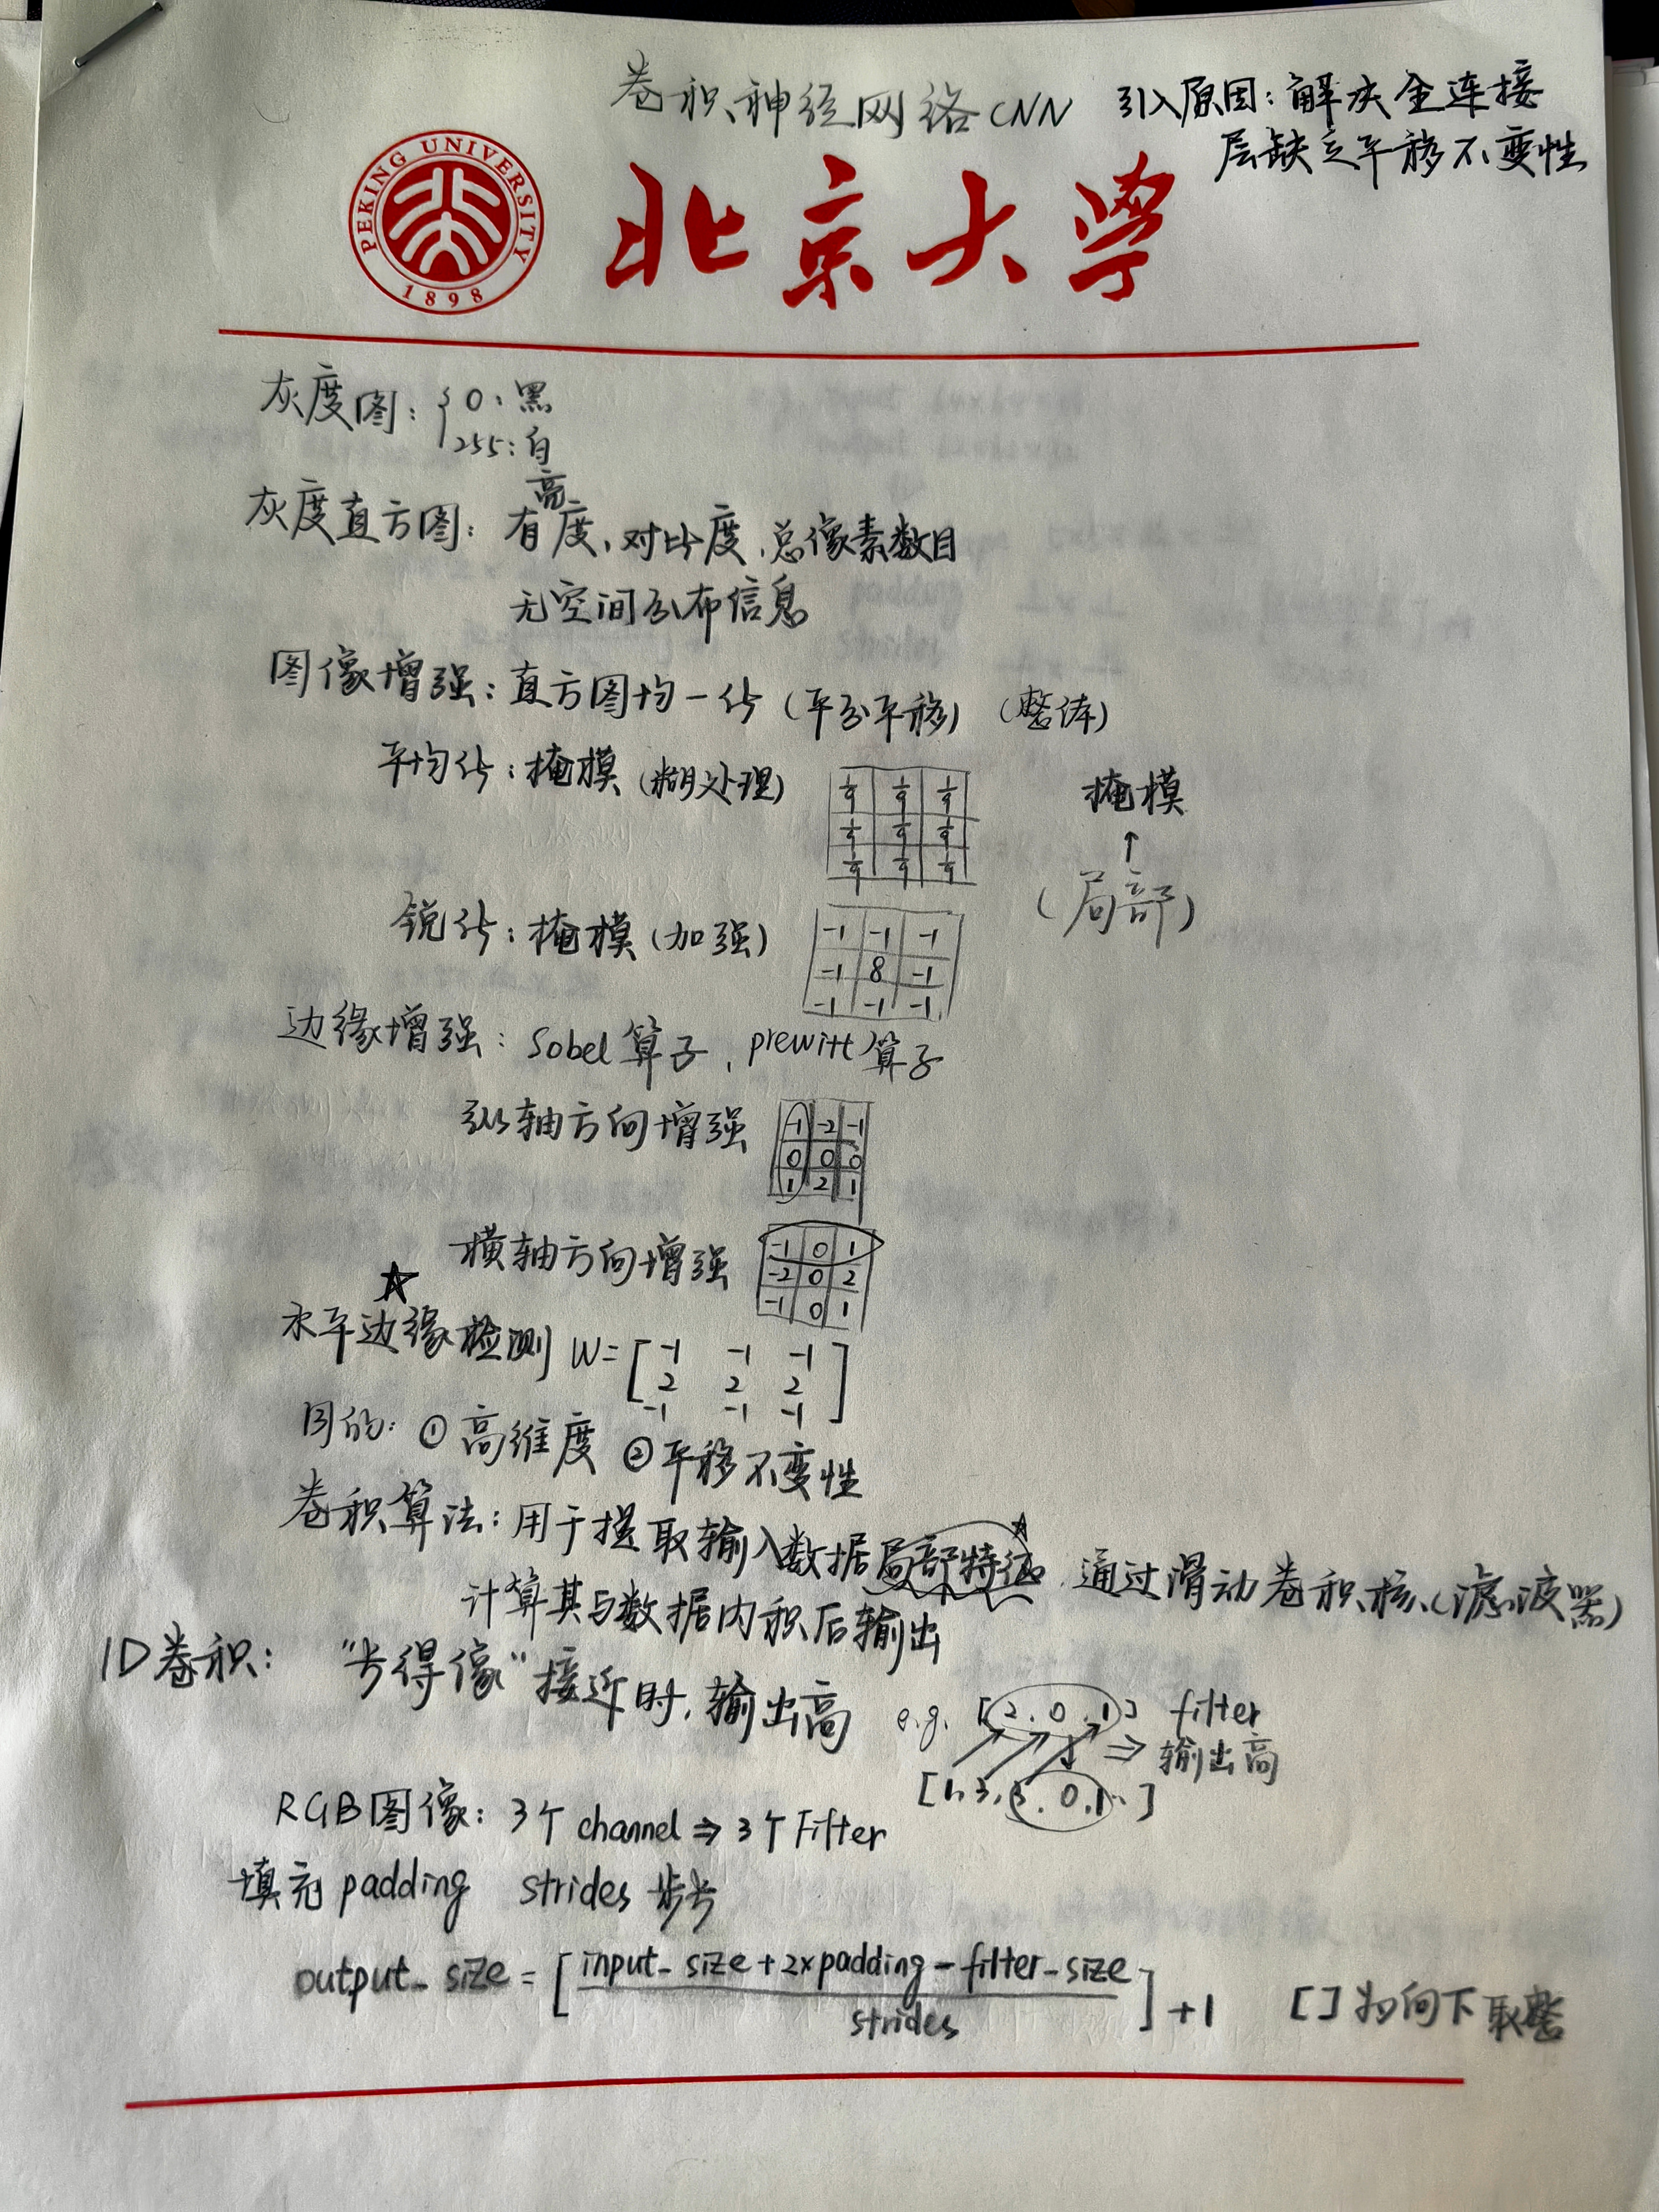 卷积神经网络CNN 引入原因：解决全连接
层缺乏平移不变性
PEKING UNIVERSITY
1898
北京大学
灰度图：{0：黑
255：白
灰度直方图：有亮度、对比度、总像素数目
无空间分布信息
图像增强：直方图均一化（平分平移）（整体）
平均化：掩模（糊处理）
1/9 1/9 1/9
1/9 1/9 1/9
1/9 1/9 1/9
掩模
↑
（局部）
锐化：掩模（加强）
-1 -1 -1
-1 8 -1
-1 -1 -1
边缘增强：Sobel算子，prewitt算子
纵轴方向增强
-1 -2 -1
0 0 0
1 2 1
横轴方向增强
-1 0 1
-2 0 2
-1 0 1
☆
水平边缘检测 W=
[-1 -1 -1
2 2 2
-1 -1 -1]
目的：①高维度 ②平移不变性
卷积算法：用于提取输入数据局部特征☆，通过滑动卷积核（滤波器）
计算其与数据内积后输出
1D卷积："长得像"接近时，输出高
e.g. [2, 0, 1] filter
⇒ 输出高
[1, 3, 0, 1, ]
RGB图像：3个channel⇒3个Filter
填充padding strides 步长
output_size = [(input_size+2×padding-filter_size)/strides]+1 [ ]为向下取整